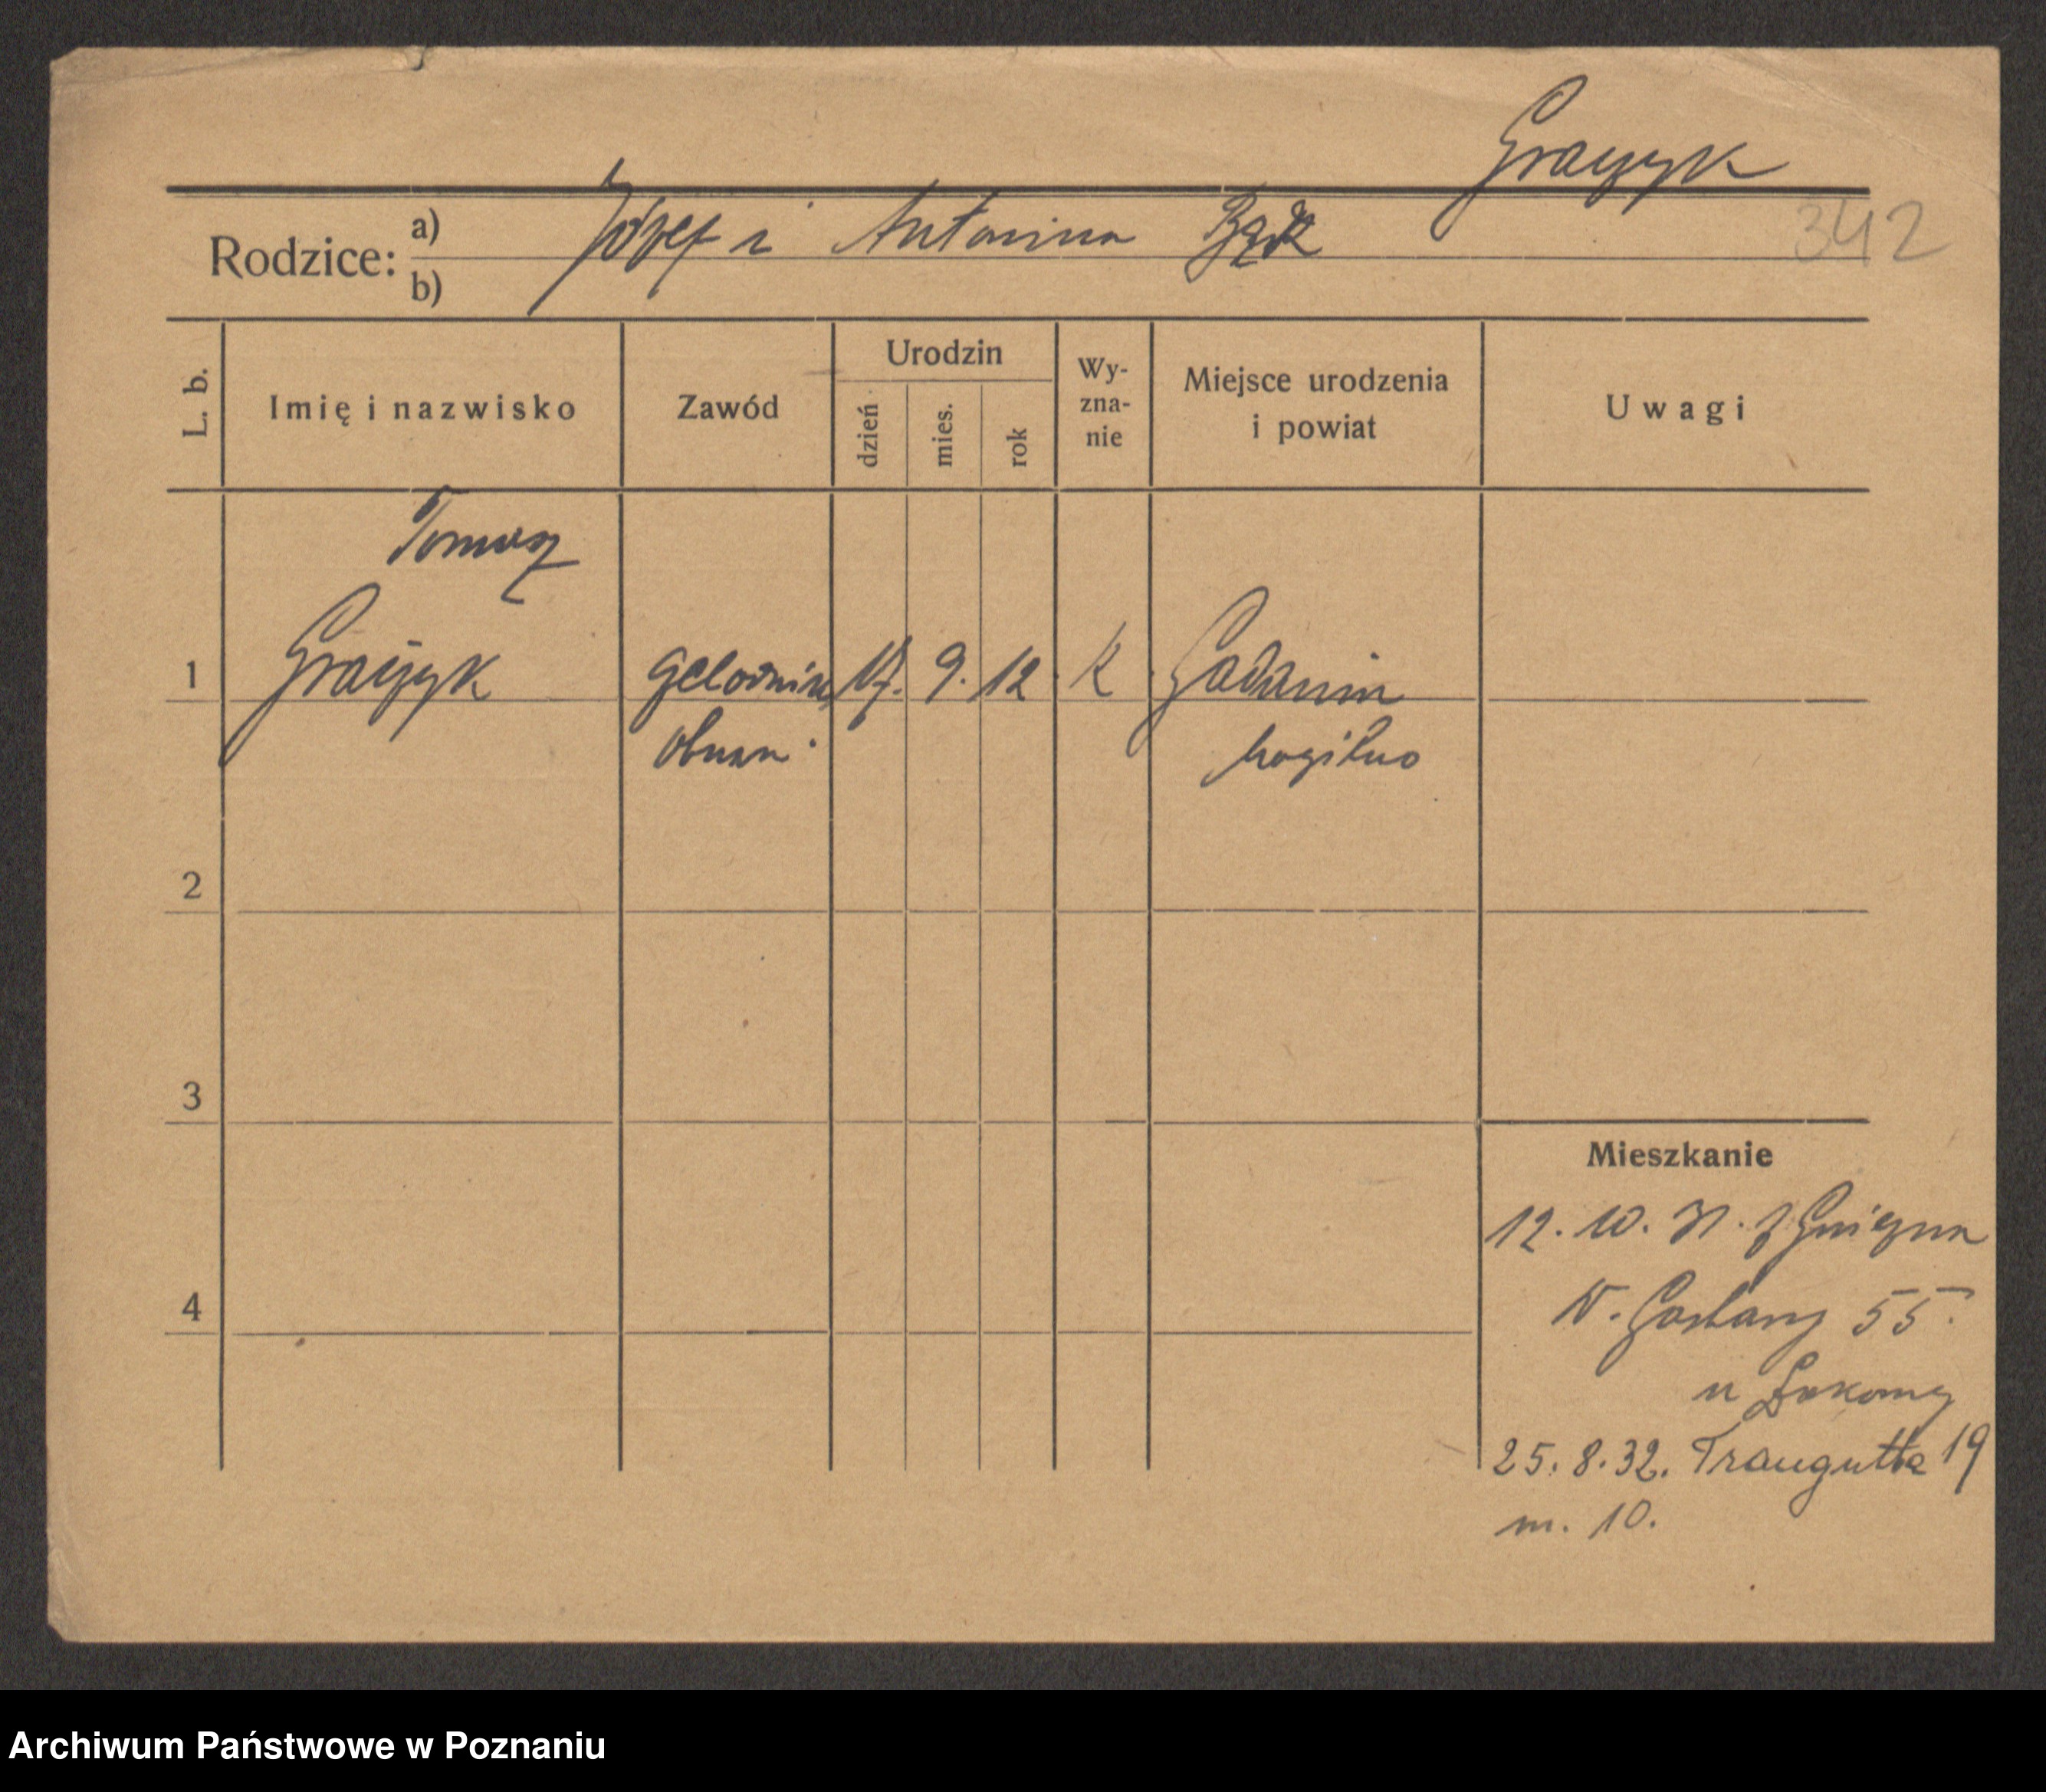 Graczyk
342
Rodzice: a) Józef i Antonina Bąk
b)
L. b. Imię i nazwisko Zawód Urodzin dzień mies. rok Wy- zna- nie Miejsce urodzenia i powiat Uwagi
Tomasz
1 Graczyk czeladnik 17. 9. 12 k
Mogilno
2
3
Mieszkanie
12. 10. 31. z Gniezna
4
55.
u Łakomy
25. 8. 32. Traugutta 19
m. 10.
Archiwum Państwowe w Poznaniu